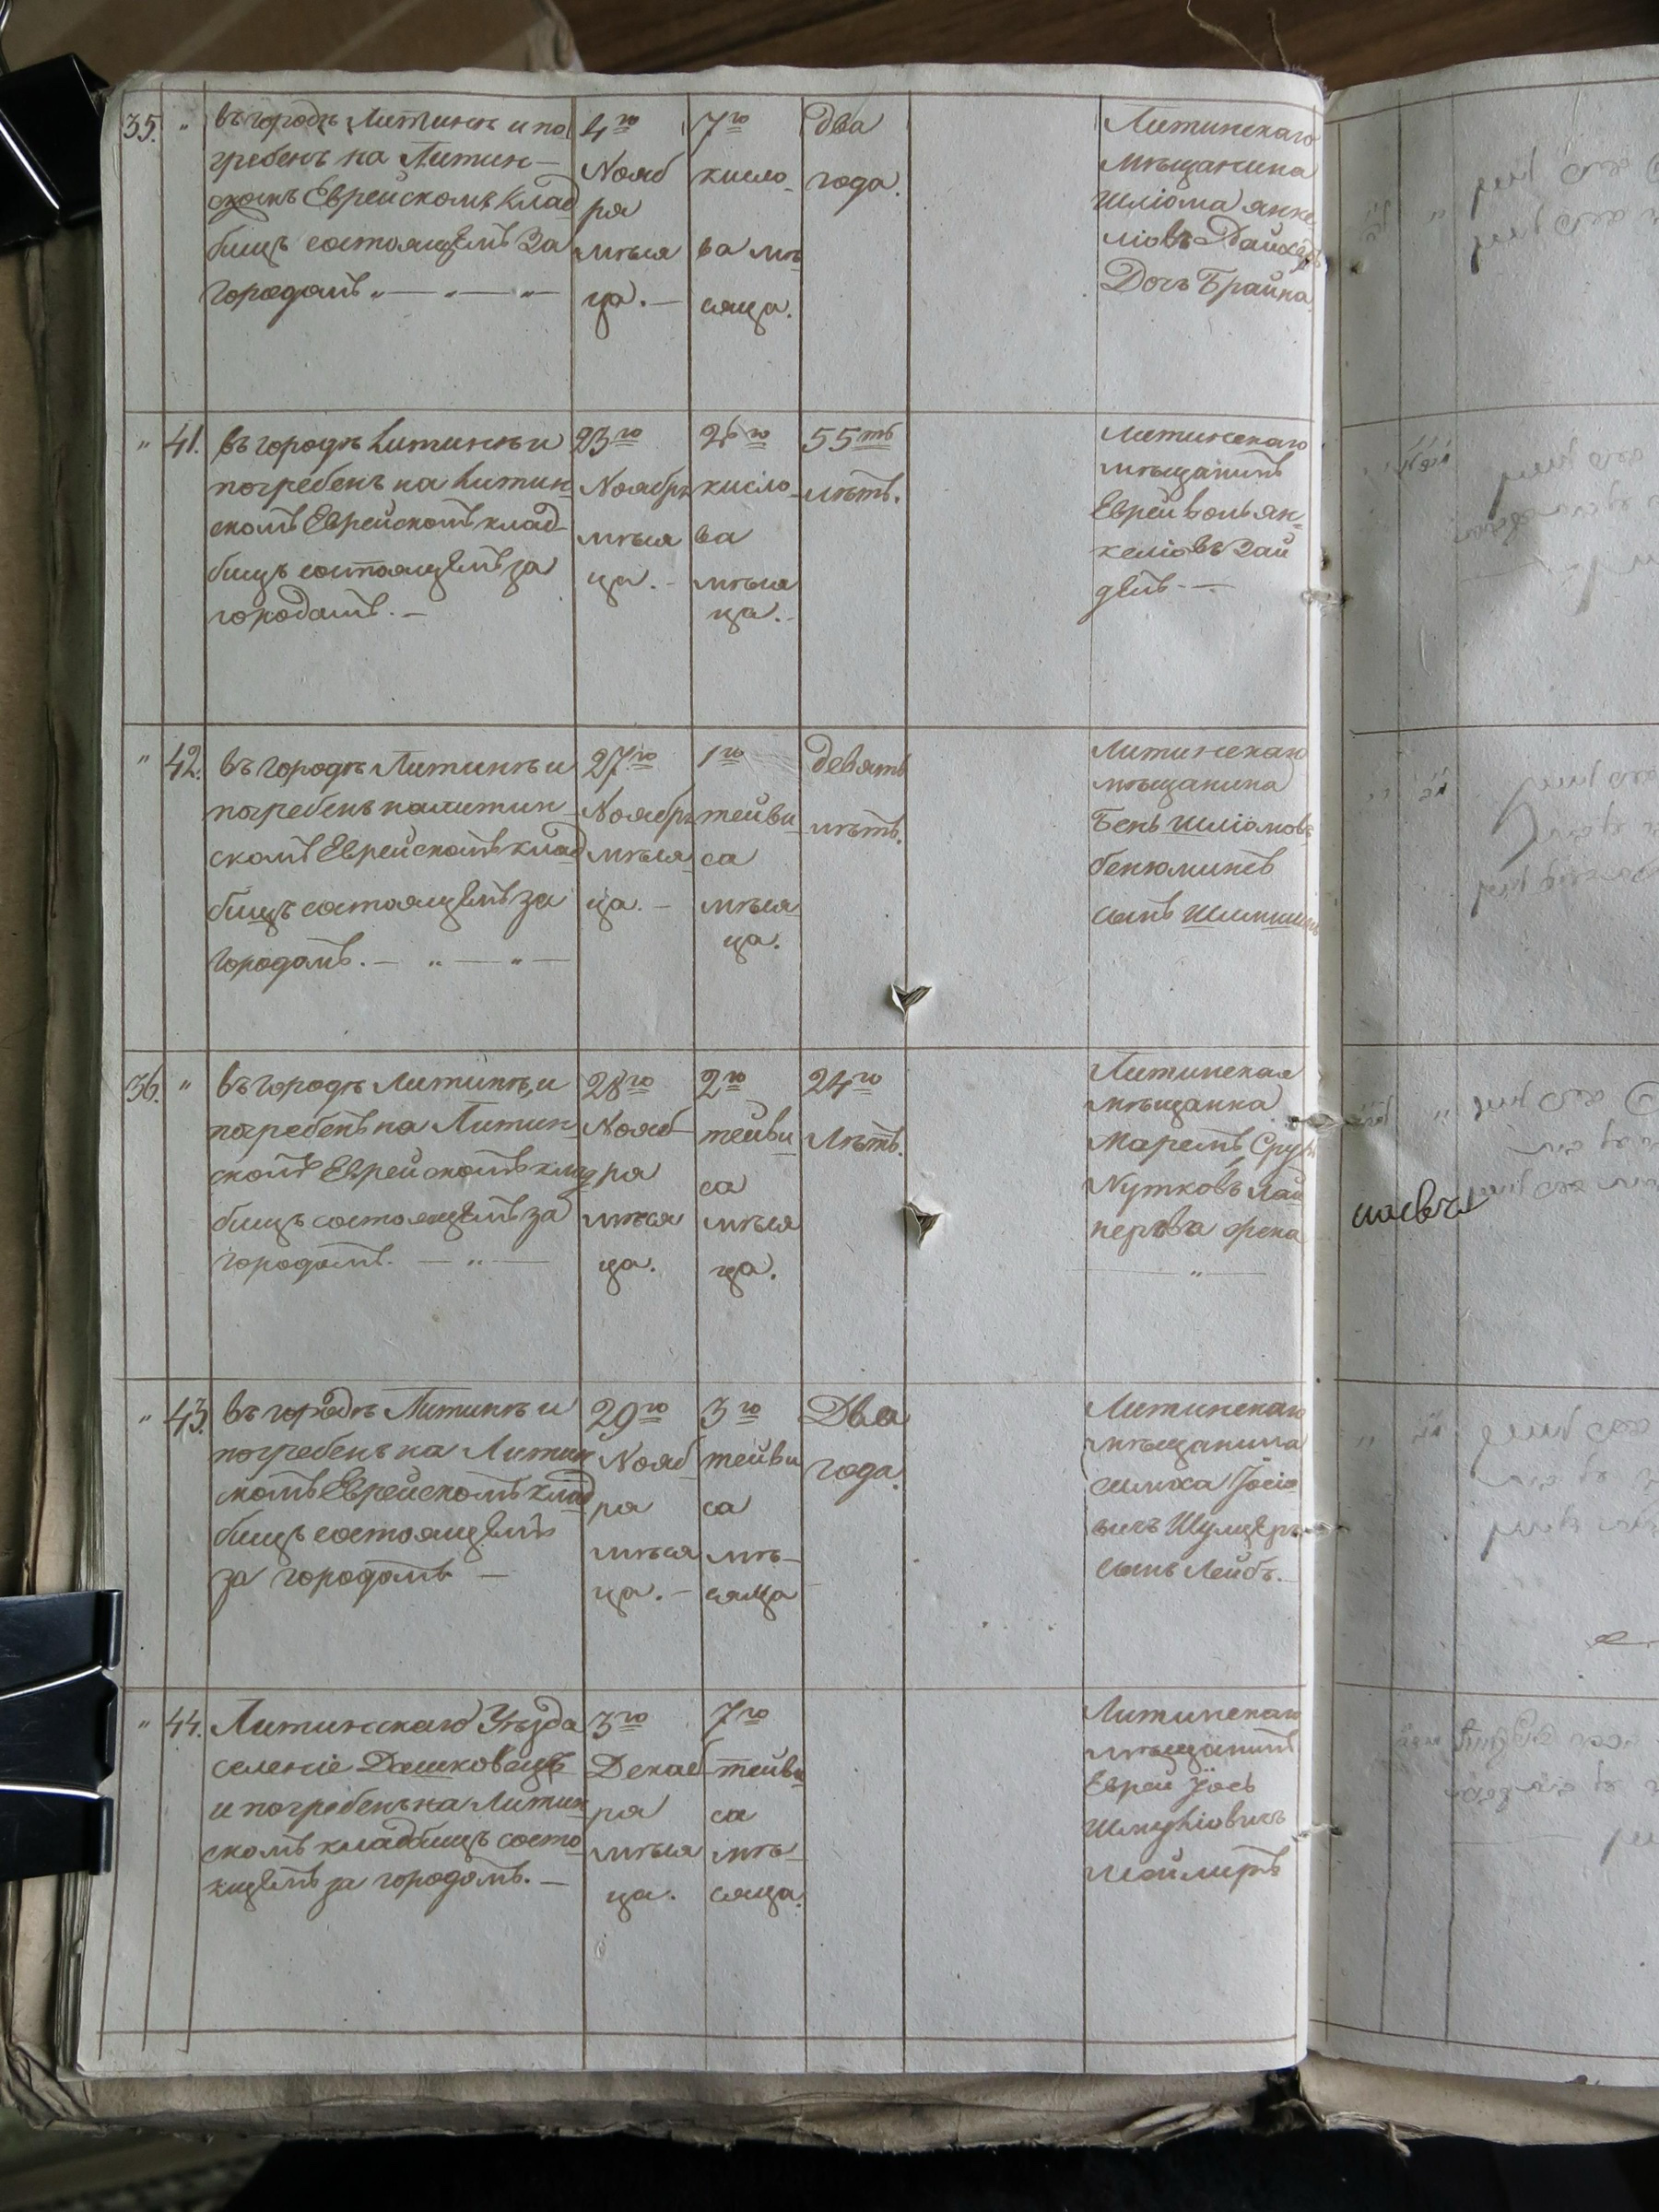 35. "
въ городѣ Литинѣ и по
гребенъ на Литин-
скомъ Еврейскомъ клад
бищѣ состоящемъ за
городомъ „ — „ — „
4го
Нояб
ря
мѣся
ца. —
7го
кисле
ва мѣ
сяца.
два
года.
Литинскаго
мѣщанина
Шліома Янке
ліовъ
Дочъ Брайна
" 41.
въ городѣ Литинѣ и
погребенъ на Литин
скомъ Еврейскомъ клад
бищѣ состоящемъ за
городомъ. —
23го
Ноябрь
мѣся
ца. —
26го
кисле
ва
мѣся
ца. -
55ть
лѣтъ.
Литинскаго
мѣщанинъ
Еврей Волъ Ян-
келіовъ Зай
детъ — -
" 42.
въ городѣ Литинѣ и
погребенъ на литин
скомъ Еврейскомъ клад
бищѣ состоящемъ за
городомъ. — „ — „ —
27го
Ноябрь
мѣся
ца. —
1го
тейви
са
мѣся
ца.
девять
лѣтъ.
Литинскаго
мѣщанина
Бенъ Шліомовъ
бенюминъ
сынъ
36. "
въ городѣ Литинѣ, и
погребенъ на Литин
скомъ Еврейскомъ клад
бищѣ состоящемъ за
городомъ. — „ —
28го
Нояб
ря
мѣся
ца.
2го
тейви
са
мѣся
ца.
24го
Лѣтъ.
Литинская
мѣщанка
Маремъ Срул
Нутковъ
— „ —
" 43.
въ городѣ Литинѣ и
погребенъ на Литин
скомъ Еврейскомъ клад
бищѣ состоящемъ
за городомъ —
29го
Нояб
ря
мѣся
ца. —
3го
тейви
са
мѣ-
сяца
Два
года.
Литинскаго
мѣщанина
Іосіо
вичъ
сынъ Лейбъ. —
" 44.
Литинскаго Уѣзда
селеніе Дашковецъ
и погребенъ на Литин
скомъ кладбищѣ состо
ящемъ за городомъ. —
3го
Декаб
ря
мѣся
ца.
7го
тейви
са
мѣ-
сяца.
Литинскаго
мѣщанинъ
Еврей Іосъ
Шмуліовичъ